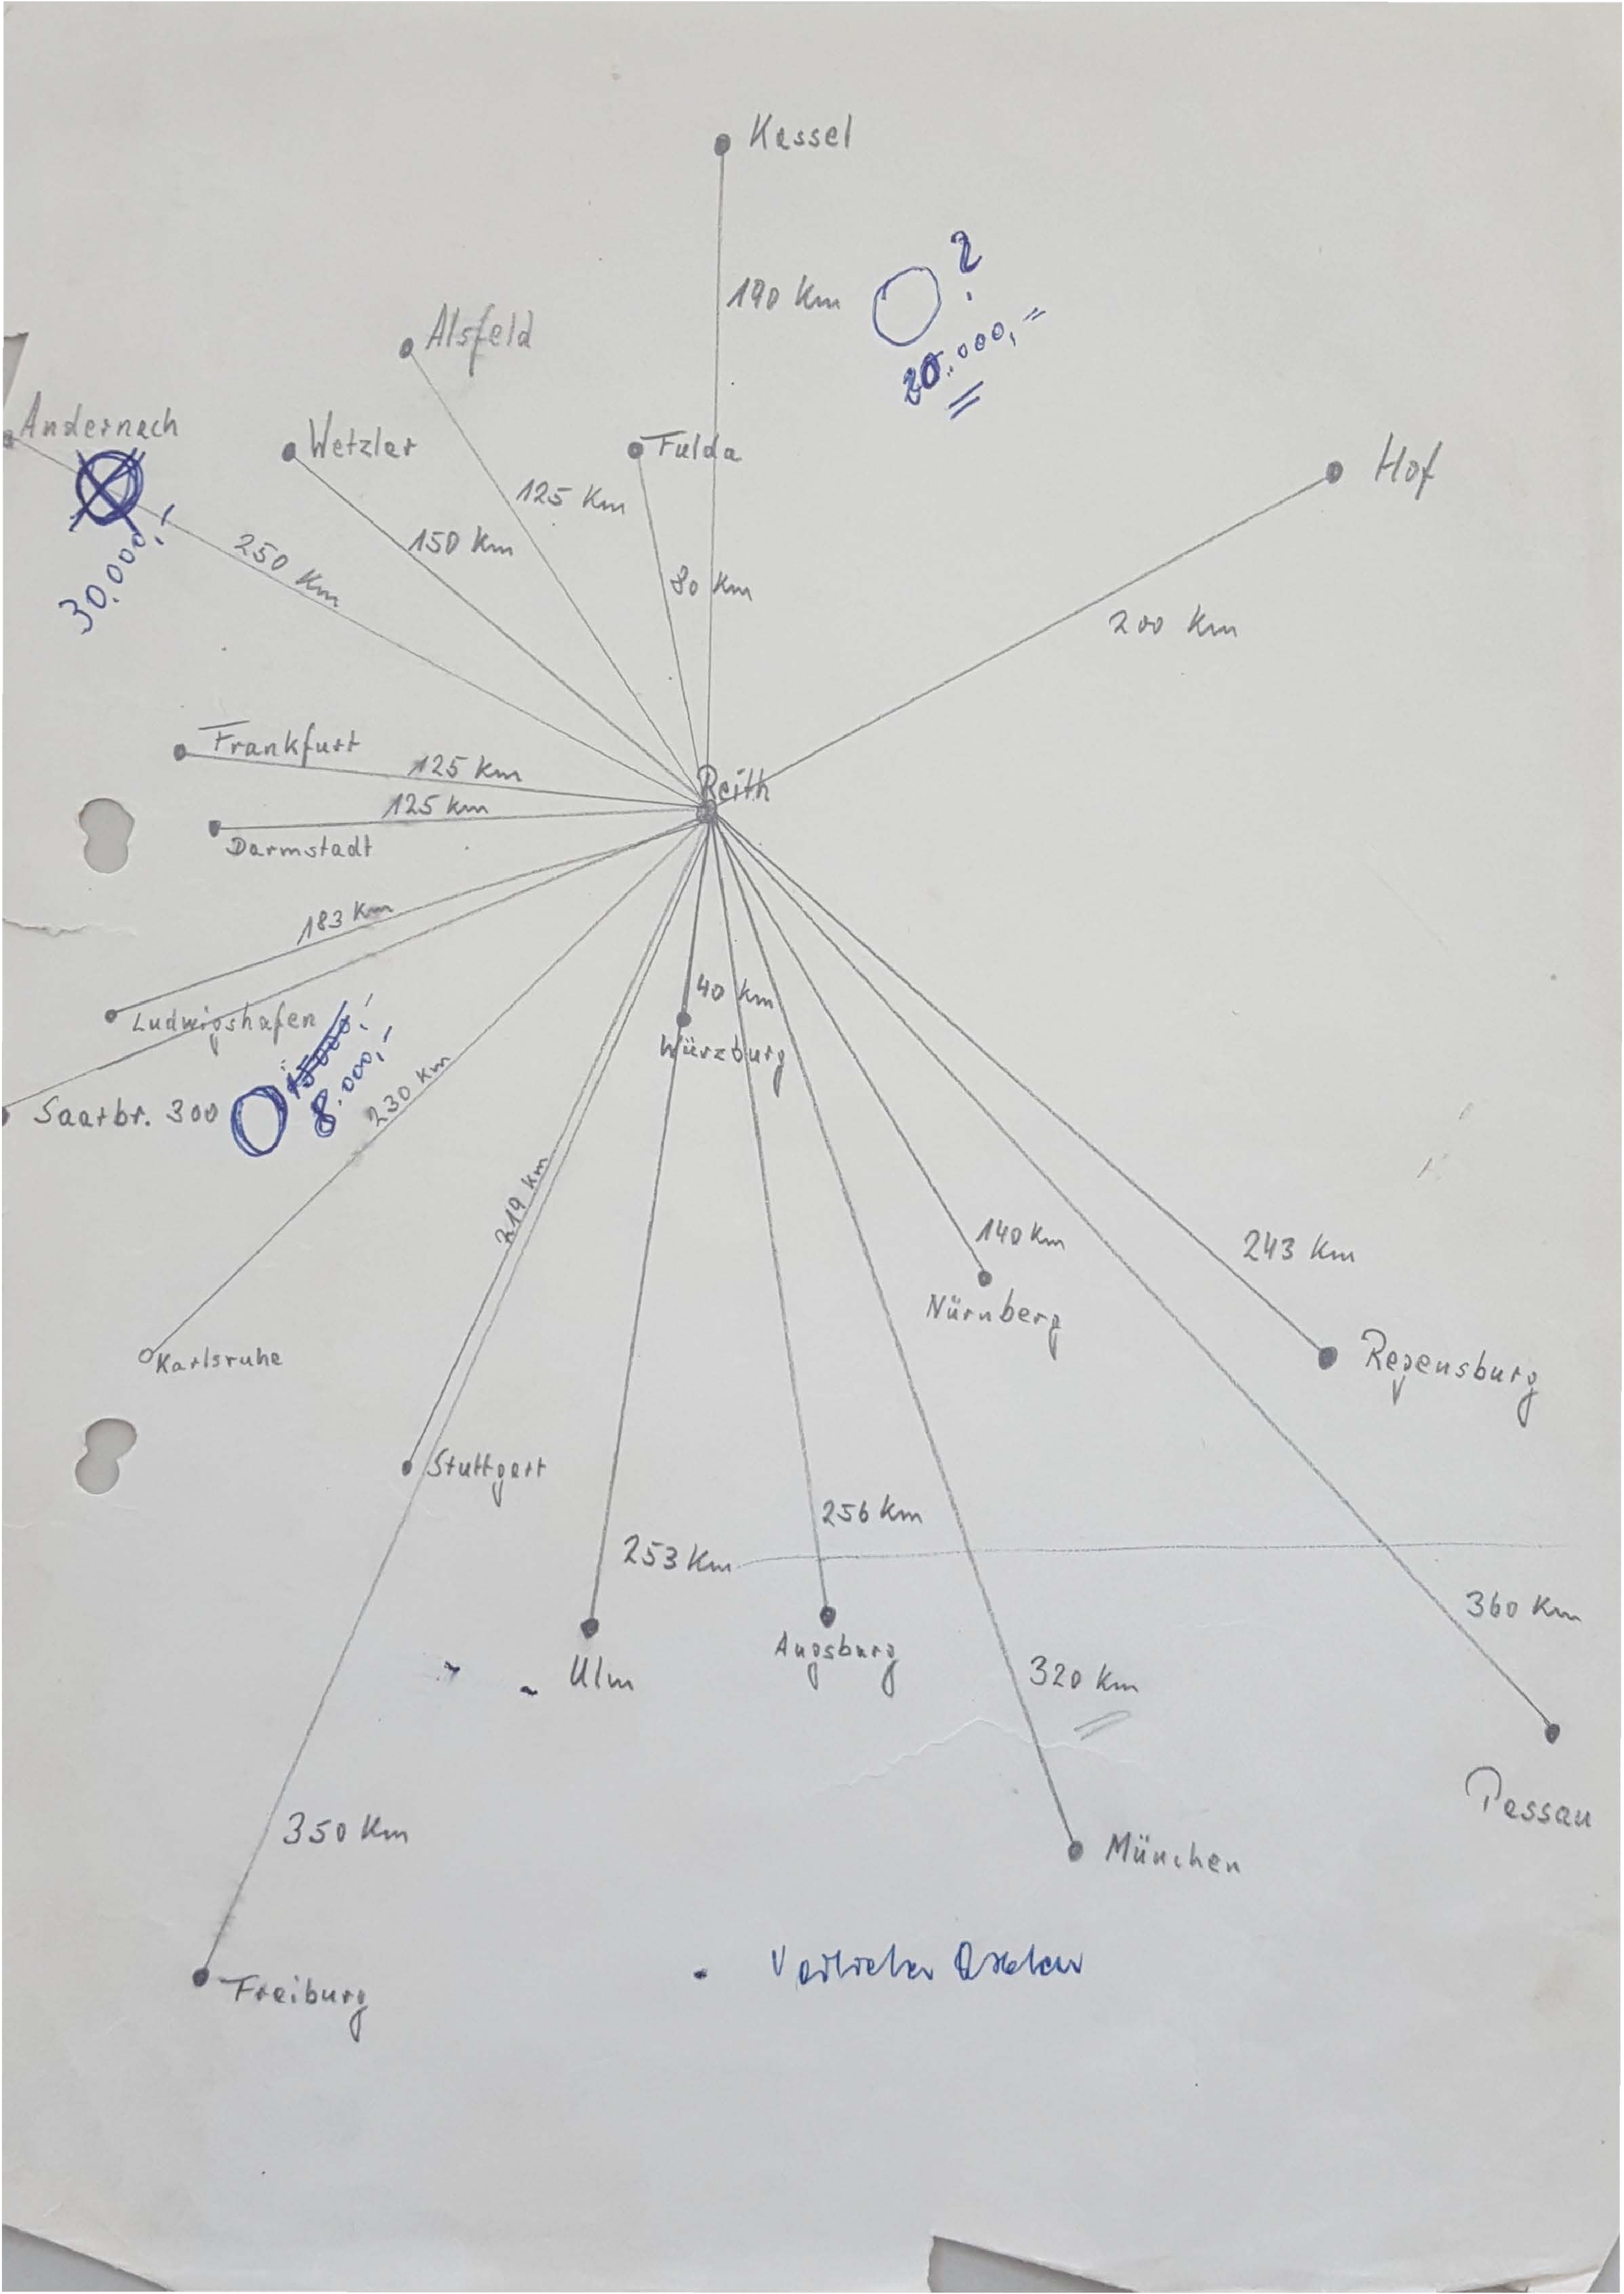 Kassel
190 Km
?
20.000,=
Alsfeld
Andernach
Wetzlar
Fulda
Hof
125 Km
150 Km
250 Km
30.000,-
80 Km
200 Km
Frankfurt
125 Km
Reith
125 Km
Darmstadt
183 Km
40 Km
Ludwigshafen
Würzburg
15000,-
8.000,-
230 Km
Saarbr. 300
219 Km
140 Km
243 Km
Nürnberg
Karlsruhe
Regensburg
Stuttgart
256 Km
253 Km
360 Km
Augsburg
Ulm
320 Km
Passau
350 Km
München
Freiburg